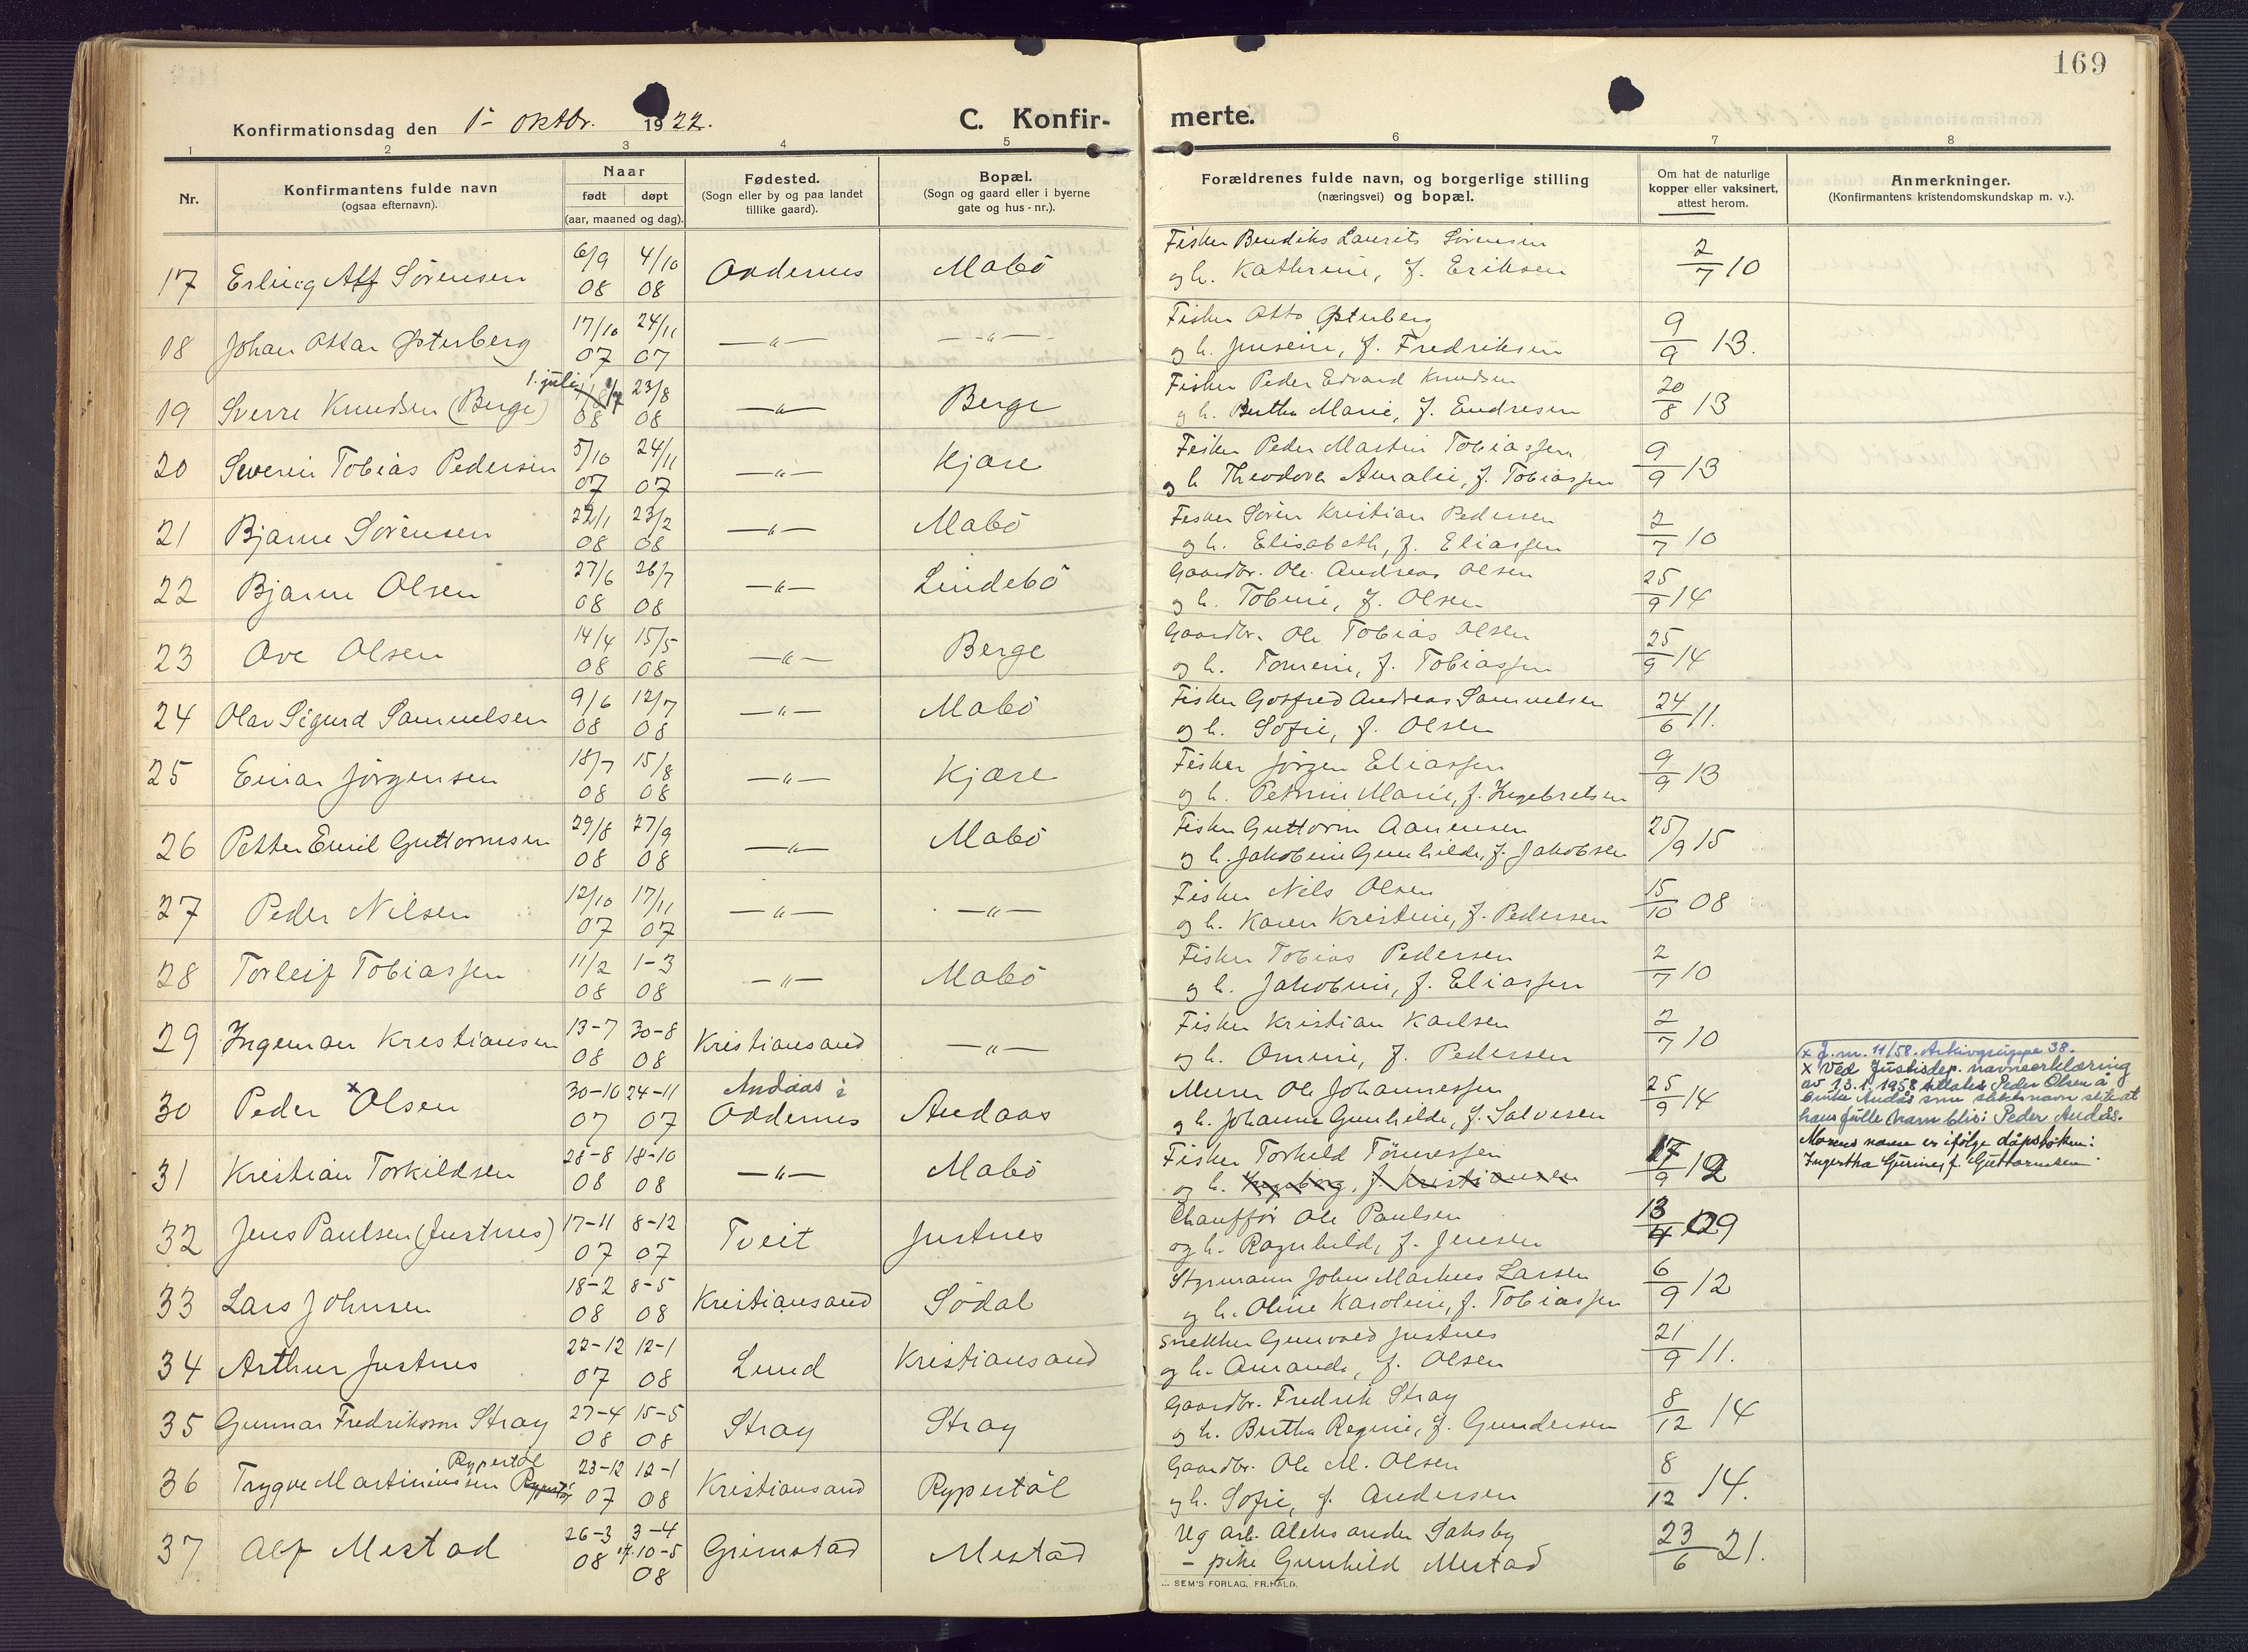 169
Konfirmationsdag den 1- oktbr. 1922.
C. Konfir-
merte.
1 2 3 4 5 6 7 8
Nr.
Konfirmantens fulde navn
(ogsaa efternavn).
Naar
født døpt
(aar, maaned og dag).
Fødested.
(Sogn eller by og paa landet
tillike gaard).
Bopæl.
(Sogn og gaard eller i byerne
gate og hus-nr.).
Forældrenes fulde navn, og borgerlige stilling
(næringsvei) og bopæl.
Om hat de naturlige
kopper eller vaksinert,
attest herom.
Anmerkninger.
(Konfirmantens kristendomskundskap m. v.).
17 Erling Alf Sörensen 6/9 08 4/10 08 Oddernes Mabö
Fisker Bendiks Laurits Sörensen
og h. Kathrine, f. Eriksen
2/7 10
18 Johan Ottar Østerberg 17/10 07 24/11 07 —"— —"—
Fisker Otto Østerberg
og h. Jensine, f. Fredriksen
9/9 13.
19 Sverre Knudsen (Berge) 1. juli 08 23/8 08 —"— Berge
Fisker Peder Edvard Knudsen
og h. Bertha Marie, f. Endresen
20/8 13
20 Severin Tobias Pedersen 5/10 07 24/11 07 —"— Kjære
Fisker Peder Martin Tobiassen
og h Theodora Amalie, f. Tobiassen
9/9 13
21 Bjarne Sörensen 22/1 08 23/2 08 —"— Mabö
Fisker Sören Kristian Pedersen
og h. Elisabeth, f. Eliassen
2/7 10
22 Bjarne Olsen 27/6 08 26/7 08 —"— Lindebö
Gaardbr. Ole Andreas Olsen
og h. Tobine, f. Olsen
25/9 14
23 Ove Olsen 14/4 08 15/5 08 —"— Berge
Gaardbr. Ole Tobias Olsen
og h. Tomine, f. Tobiassen
25/9 14
24 Olav Sigurd Samuelsen 9/6 08 12/7 08 —"— Mabö
Fisker Gotfred Andreas Samuelsen
og h. Sofie, f. Olsen
24/6 11.
25 Einar Jörgensen 18/7 08 15/8 08 —"— Kjære
Fisker Jörgen Eliassen
og h. Petrine Marie, f. Ingebretsen
9/9 13
26 Petter Emil Guttormsen 29/8 08 27/9 08 —"— Mabö
Fisker Guttorm Aanensen
og h. Jakobine Gunhilde, f. Jakobsen
25/9 15
27 Peder Nilsen 12/10 07 17/11 07 —"— —"—
Fisker Nils Olsen
og h. Karen Kristine, f. Pedersen
15/10 08
28 Torleif Tobiassen 11/2 08 1-3 08 —"— Mabö
Fisker Tobias Pedersen
og h. Jakobine, f. Eliassen
2/7 10
29 Ingeman Kristiansen 13-7 08 30-8 08 Kristiansand —"—
Fisker Kristian Karlsen
og h. Omine, f. Pedersen
2/7 10
30 Peder x Olsen 30-10 07 24-11 07 Andaas i Oddernes Andaas
Murer Ole Johannessen
og h. Johanne Gunhilde, f. Salvesen
25/9 14
x J.nr. 11/58. Arkivgruppe 38.
x Ved Justisdep. navneerklæring
av 13.1.1958 tillates Peder Olsen å
bruke Andås som slektsnavn slik at
hans fulle navn blir: Peder Andås.
31 Kristian Torkildsen 28-8 08 18-10 08 —"— Mabö
Fisker Torkild Tönnessen
og h. Ingeborg, f. Kristiansen
17/9 12
Morens navn er ifølge dåpsboken:
Ingertha Gurine, f. Guttormsen
32 Jens Paulsen (Justnes) 17-11 07 8-12 07 Tveit Justnes
Chauffør Ole Paulsen
og h. Ragnhild, f. Jensen
13/4 09
33 Lars Johnsen 18-2 08 8-5 08 Kristiansand Södal
Styrmann John Markus Larsen
og h. Oline Karoline, f. Tobiassen
6/9 12
34 Arthur Justnes 22-12 07 12-1 08 Lund Kristiansand
Snekker Gunvald Justnes
og h. Amanda, f. Olsen
21/9 11.
35 Gunnar Fredriksson Stray 27-4 08 15-5 08 Stray Stray
Gaardbr. Fredrik Stray
og h. Bertha Regine, f. Gundersen
8/12 14
36 Trygve Martiniussen Rypestöl 23-12 07 12-1 08 Kristiansand Rypestöl
Gaardbr. Ole M. Olsen
og h. Sofie, f. Andersen
8/12 14.
37 Alf Mestad 26-3 08 3-4 10-5 08 Grimstad Mestad
Ug arb. Aleksander Saksby
- pike Gunhild Mestad
23/6 21.
SEM'S FORLAG, FR.HALD.